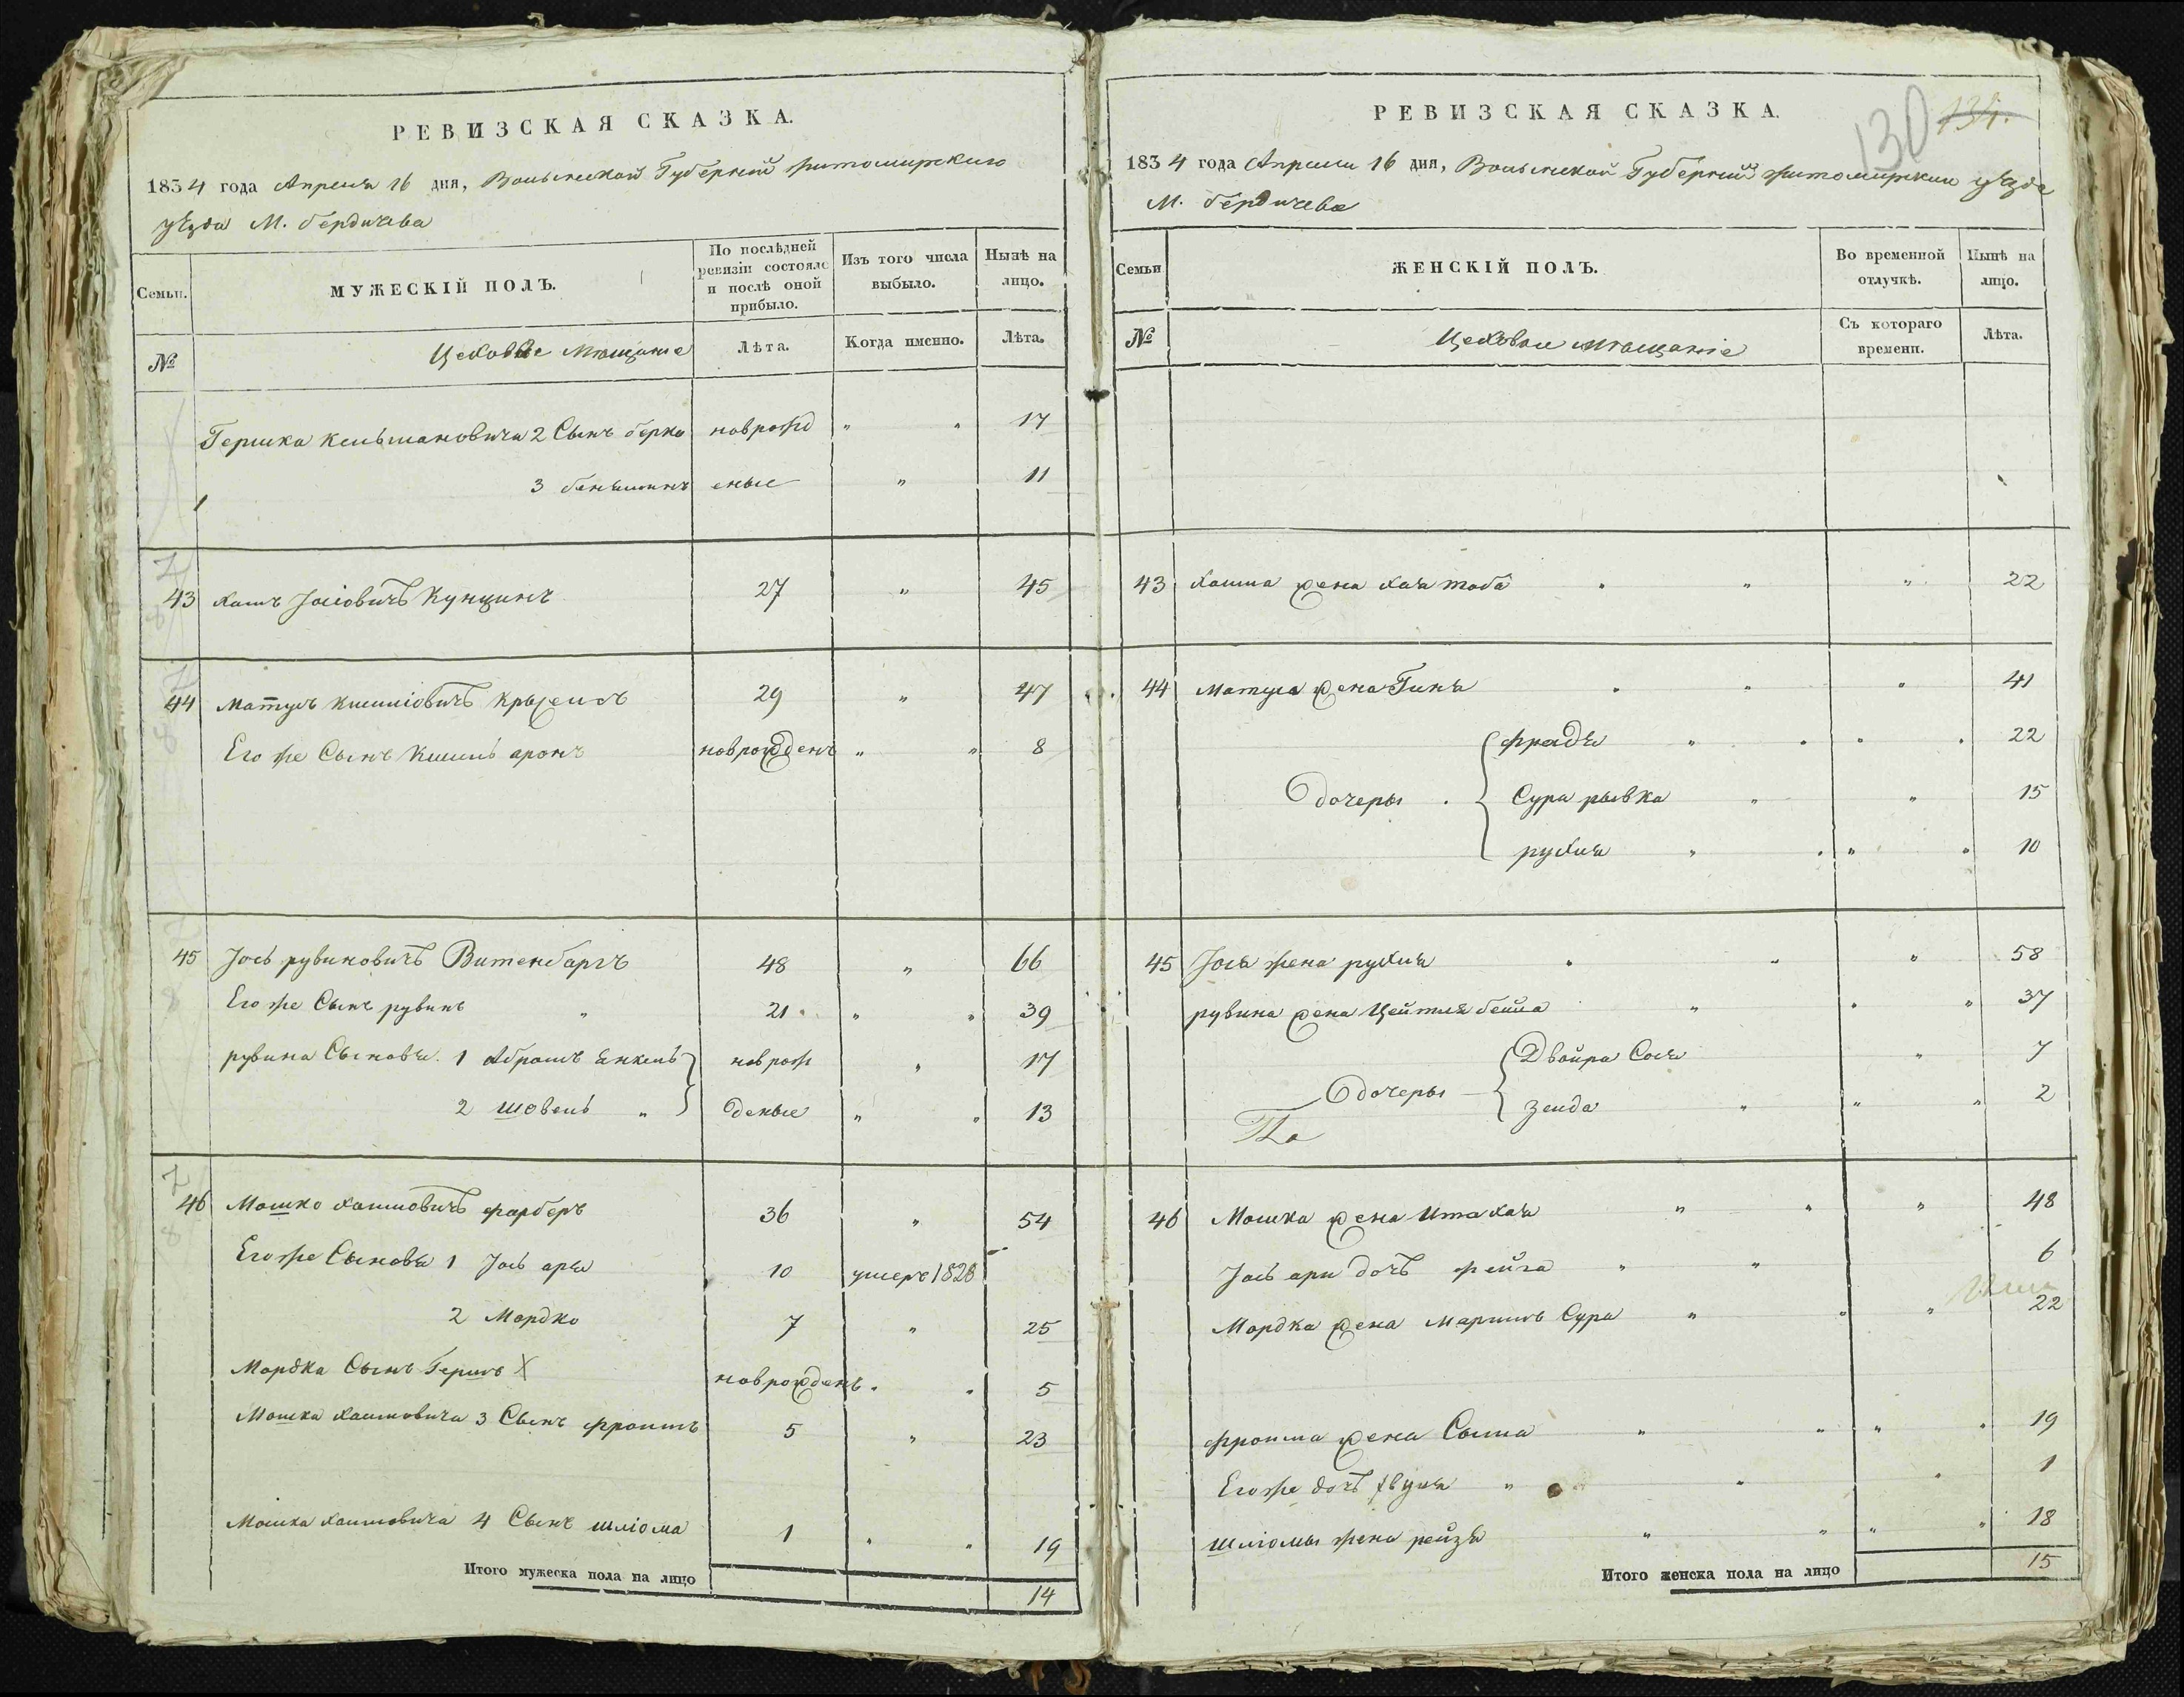 РЕВИЗСКАЯ СКАЗКА.
1834 года Апреля 16 дня, Волынской Губерний житомирского
уѣзда М. бердичева
Семьи.
МУЖЕСКІЙ ПОЛЪ.
По послѣдней ревизіи состояло и послѣ оной прибыло.
Изъ того числа выбыло.
Нынѣ на лицо.
№
Цеховые мещание
Лѣта.
Когда именно.
Лѣта.
Гершка Кельмановича 2 Сынъ берко новрожд " " 17
3 беньяминъ еные " 11
43 хаимъ Јосіовичъ Кунцинъ 27 " 45
44 Матусъ Кисиліовичъ 29 " 47
Его же Сынъ Кисиль аронъ новрожденъ " " 8
45 Јось рувиновичъ Витенбаргъ 48 " 66
Его же Сынъ рувинъ " 21 " " 39
рувина Сыновя. 1 Абрамъ янкель новрож " 17
2 шовель " деные " " 13
46 Мошко хаимовичъ фарберъ 36 " 54
Его же Сыновя 1 Јось аря 10 умеръ 1828
2 Мордко 7 " 25
Мордка Сынъ Гершъ X новрожденъ " " 5
Мошка хаимовича 3 Сынъ фроимъ 5 " 23
Мошка хаимовича 4 Сынъ шліома 1 " " 19
Итого мужеска пола на лицо
14
РЕВИЗСКАЯ СКАЗКА.
130 134.
1834 года Апреля 16 дня, Волынской Губерний житомирскаи уѣзда
М. бердичева
Семьи
ЖЕНСКІЙ ПОЛЪ.
Во временной отлучкѣ.
Нынѣ на лицо.
№
Цеховаи мещаніе
Съ котораго времени.
Лѣта.
43 хаима жена хая тоба " " " 22
44 Матуса жена Гиня " " " 41
фрадя " " " " 22
дочеры Сура рывка " " 15
рухля " " " " 10
45 Јося жена рухля " " " 58
рувина жена Цейтля бейла " " " 37
Двойра Сося " 7
дочеры
зелда " " " 2
46 Мошка жена Ита хая " " " 48
Јось ари дочъ фейга " " 6
Мордка жена Маримъ Сура " " " 22
фроима жена Сосиа " " " " 19
Его же дочъ " " " 1
шліомы жена рейзя " " " " 18
Итого женска пола на лицо
15